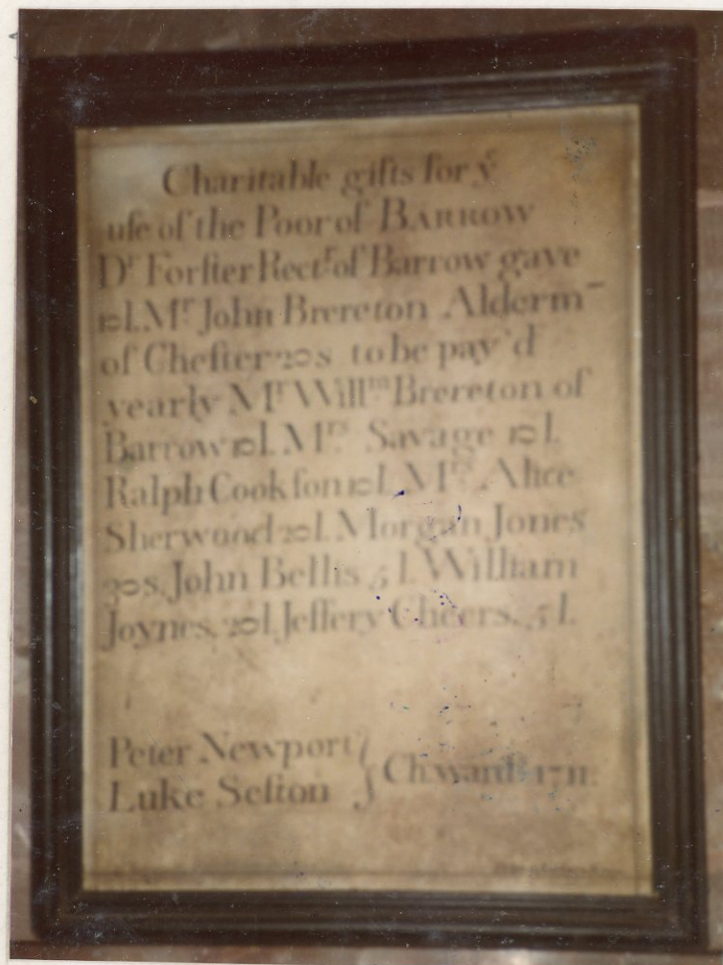 Charitable gifts for yͤ
uſe of the Poor of BARROW
Dʳ Forſter Rectʳ of Barrow gave
10l. Mʳ John Brereton Alderm‾
of Cheſter 20s to be pay'd
yearly Mʳ Willᵐ Brereton of
Barrow 10l. Mʳˢ Savage 10l.
Ralph Cookſon 10l. Mʳˢ Alice
Sherwood 20l. Morgan Jones
30s. John Bellis 5l. William
Joynes. 20l Jeffery Cheers. 5l.
Peter Newport
Luke Sefton } Ch:wardⁿˢ 1711: